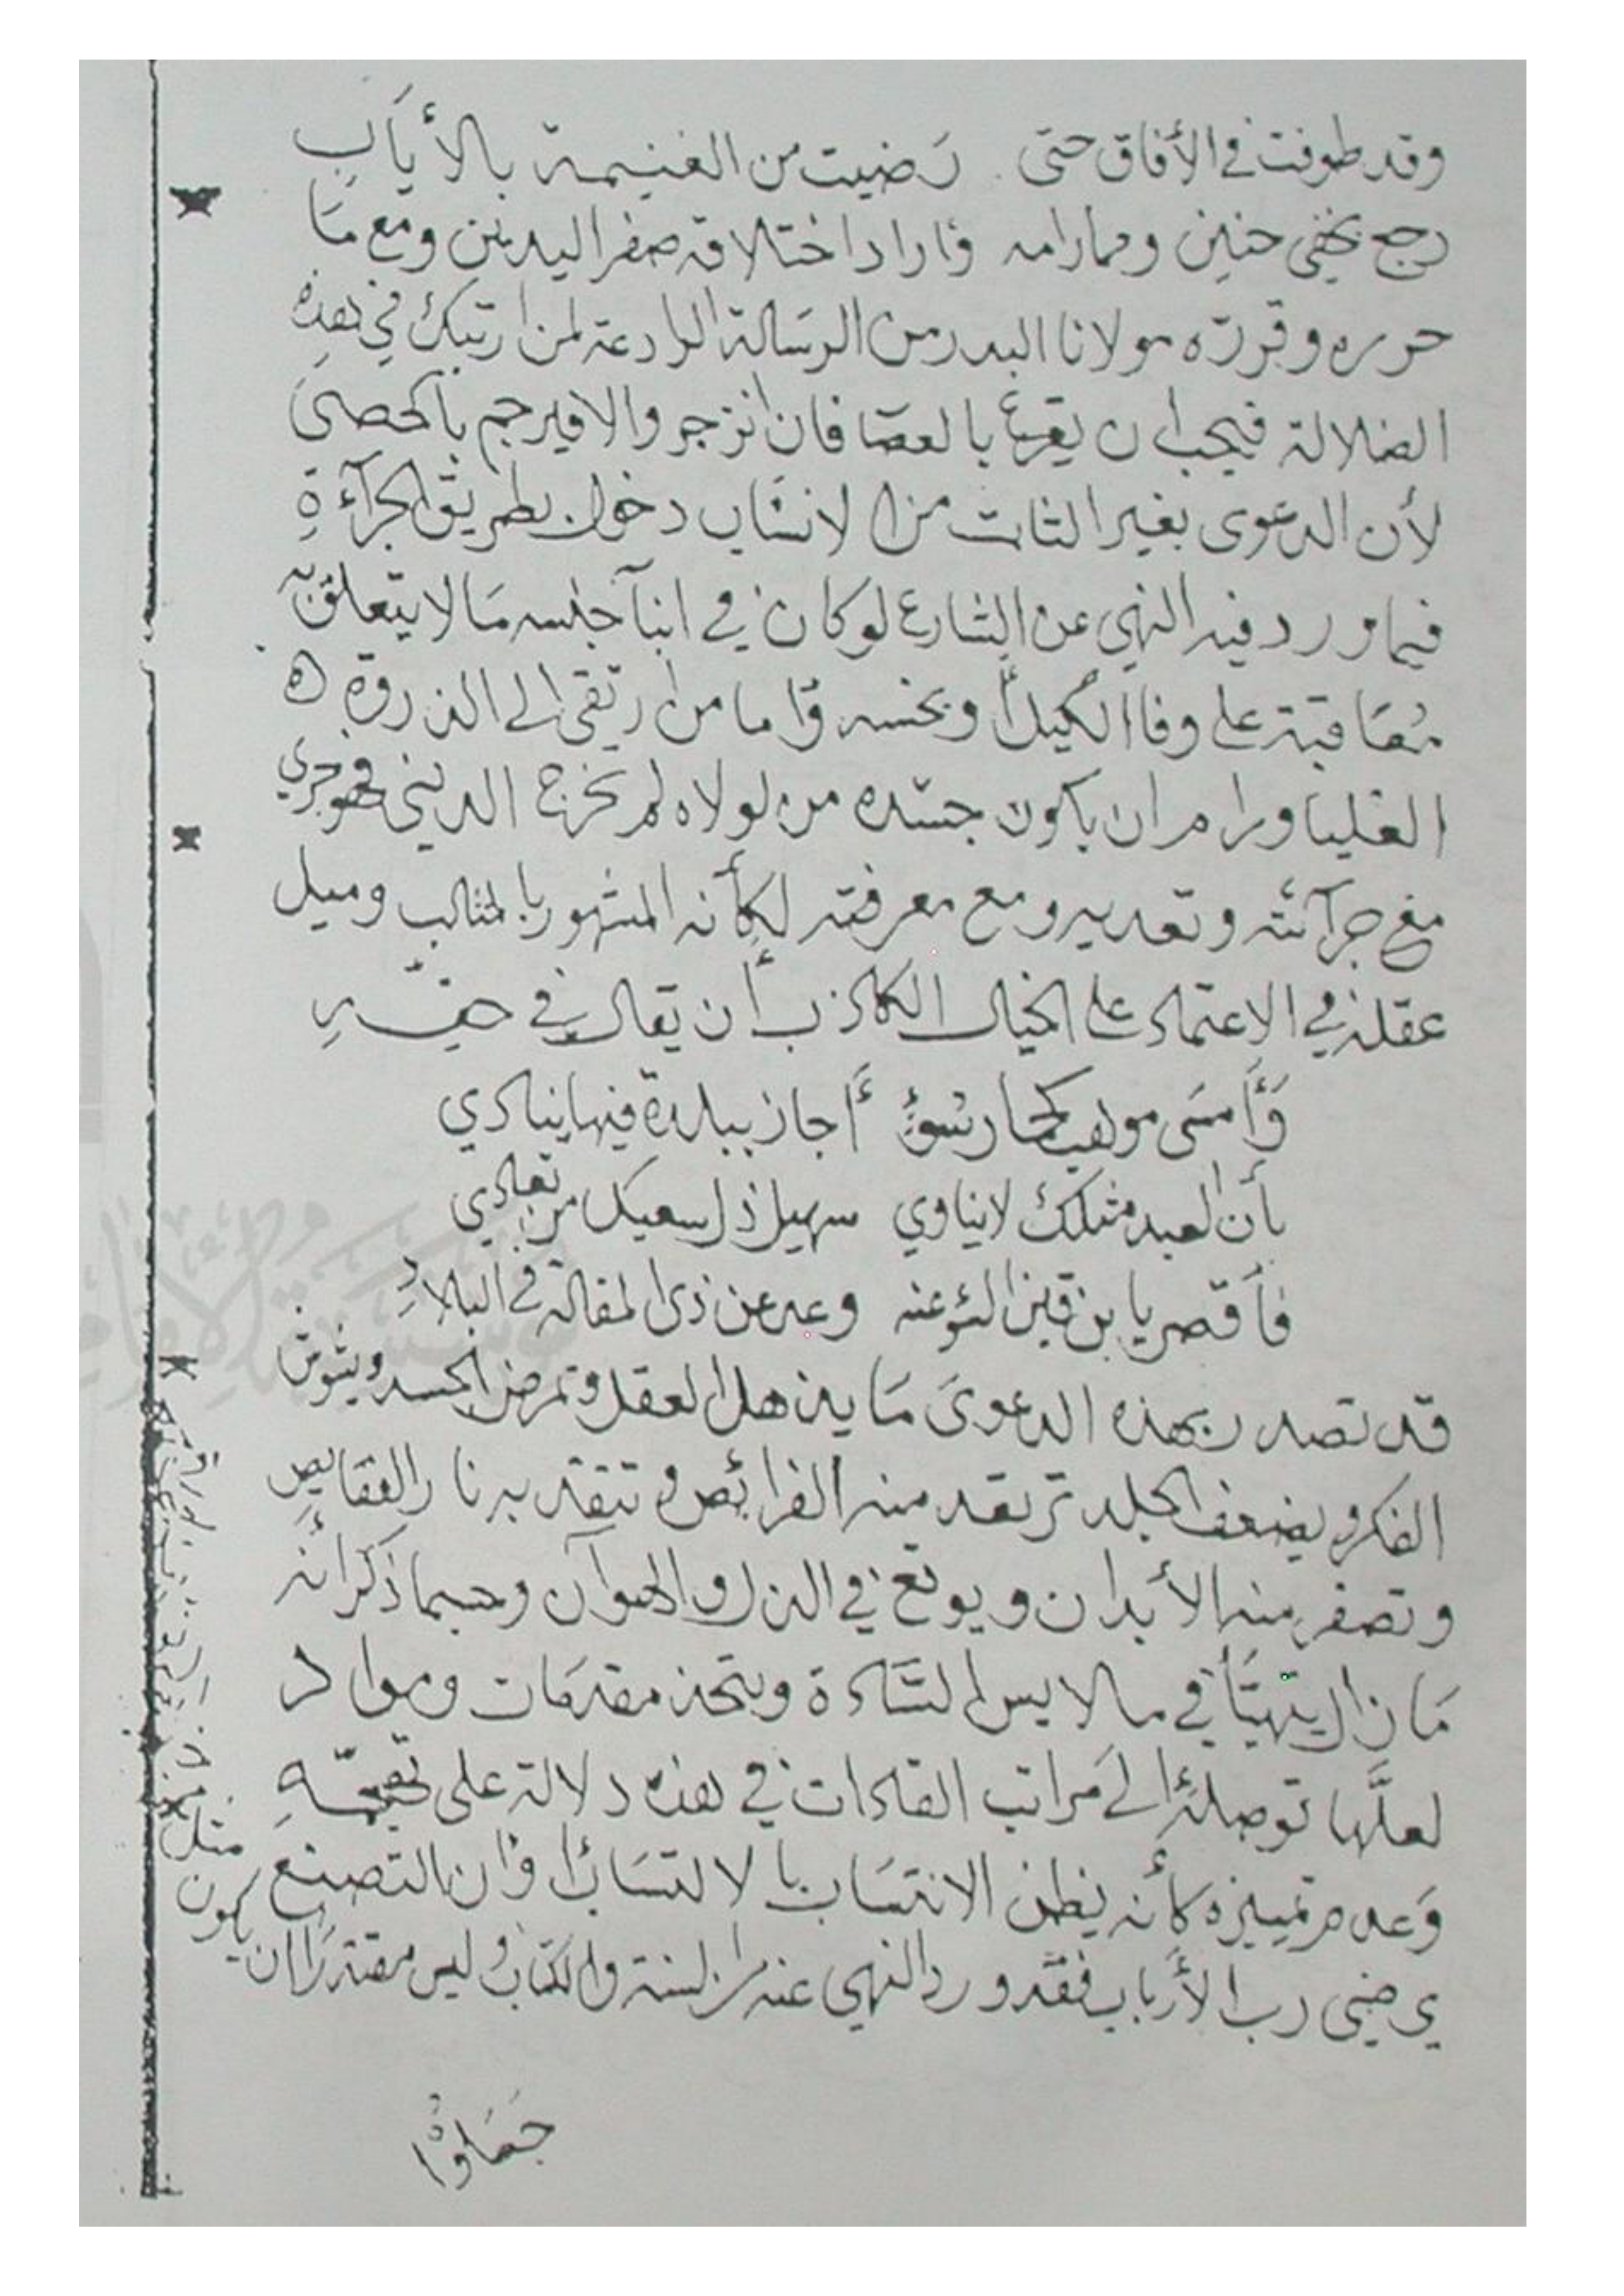 وقد طوفت في الأفاق حتى رَضيت من الغنيمة بالأيَاب
رجع بخفي حنين ومما رامه وَاراد اختلاقه صفر اليدين ومع مَا
حرره وقررّه مولانا البدر من الرسَالة الرادعة لمن ارتبك في هذِه
الضلالة فيجب ان يقرع بالعصَا فان انزجر والا فيرجم بالحصىَ
لأن الدعوى بغير الثابت من الانسَاب دخول بطريق الجرآءةِ
فيما ورد فيه النهي عن الشارع لو كان في ابنآ جنسه مَا لا يتعلق به
مُعَاقبة على وفا الكيل وبخسه وَاما من ارتقى الى الذروة
العليا ورام ان يكون جسّده من لولاه لم تخرج الدنيى فهو جري
مع جرآئته وتعديه ومع معرفته لكأنه المشهور بالمثالب وميل
عقله في الاعتماد على الخيال الكاذب بأن يقال في حقّهِ
وَأَمسَى موهب كحمار سُوءٍ أَجاز ببلدة فيها ينادي
بأن العبد مثلك لا يناوي سهيلا ذل سعيك من تعادي
فأقصر يا بن قين السُوء عنه وعد عن ذي المقالة في البلادِ
قد تصدر بهذه الدعوىَ مَا يذهل العقل وتمرض الجسد ويشوش
الفكر ويضعف الجلد ترتعد منه الفرائص و تتقد به نار
وتصفر منه الأبدان ويوقع في الذل والهوآن وحسبما ذكر أنه
مَا زال يتهيَّأ في ملابس السَّادة ويتخذ مقدمَات ومواد
لعلَّها توصله إلى مَراتب القادات في هذه دلالة على
وَعدم تمييزه كأنه يظن الانتسَاب بالاكتسَاب او ان التصنع
يرضي رب الأرباب فقد ورد النهي عنه من السنة والكتاب وليس مقتدرًا ان يكون
مثل
جَمَلوْا